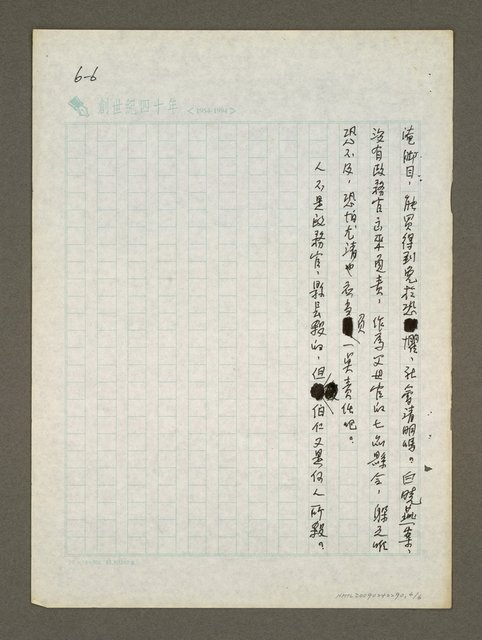 6-6
創世紀四十年 <1954-1994>
淹腳目,能買得到免於恐懼,社會清明嗎。白曉燕一案,
沒有政務官出來負責,作為父母官的七品縣令,躲之唯
恐不及,恐怕尤清也衣負一點責任吧。
人不是政務官,縣長殺的,但伯仁又是何人所殺。
NMTL20090242290.6/6